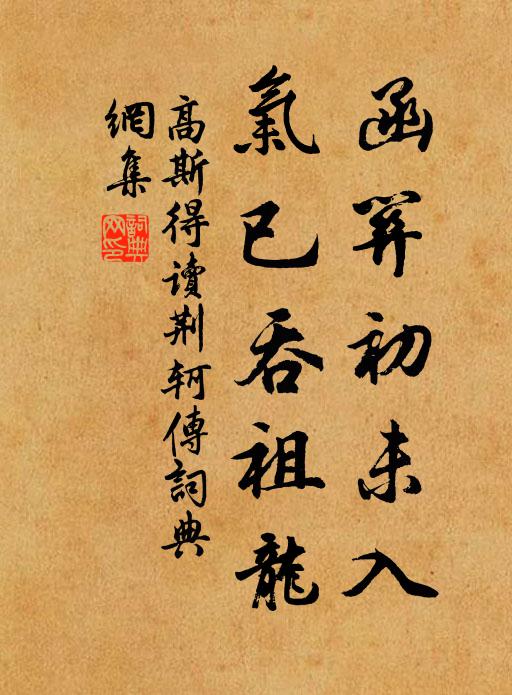 函关初未入
氣已吞祖龍
高斯得讀荆轲傳詞典
網集
詞典
网印